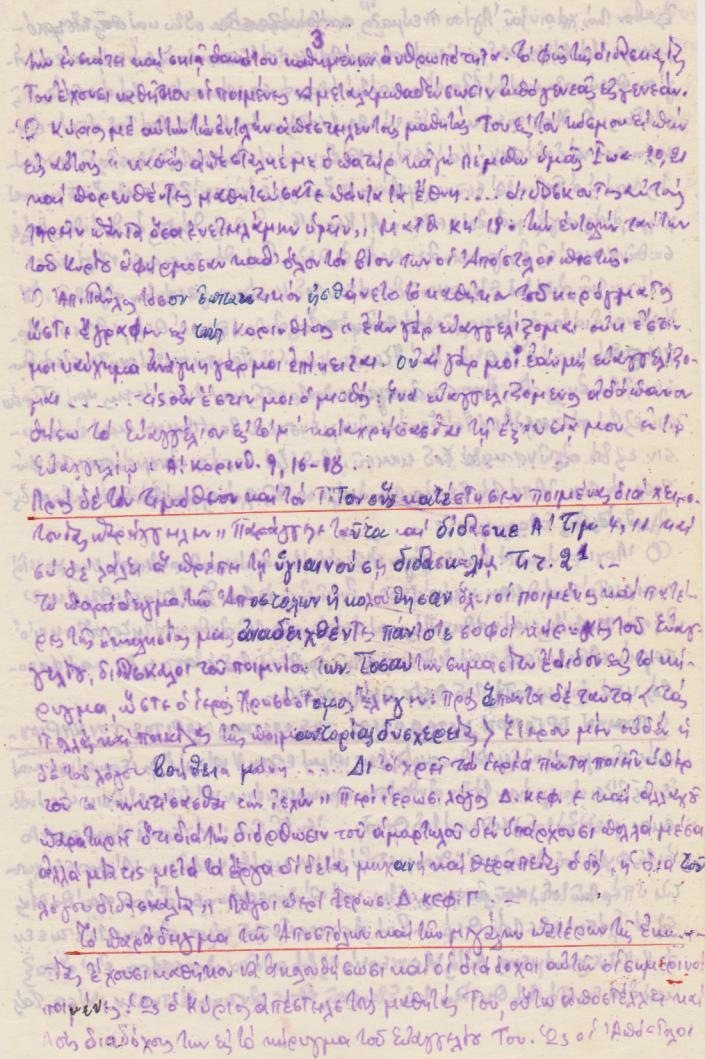 3
τὴν ἐν σκότει καὶ σκιᾷ θανάτου καθημένην ἀνθρωπότητα. Τὸ φῶς τῆς διδασκαλίας
Του ἔχουσι καθῆκον οἱ ποιμένες νὰ μεταλαμπαδεύσωσιν ἀπὸ γενεᾶς εἰς γενεάν.
Ὁ Κύριος μὲ αὐτὴν τὴν ἐντολὴν ἀπέστειλε τοὺς μαθητάς Του εἰς τὸν κόσμον εἰπὼν
εἰς αὐτοὺς " καθὼς ἀπέσταλκέ με ὁ πατὴρ κἀγὼ πέμπω ὑμᾶς Ἰωα. 20, 21
καὶ πορευθέντες μαθητεύσατε πάντα τὰ ἔθνη.... διδάσκοντες αὐτοὺς
τηρεῖν πάντα ὅσα ἐνετειλάμην ὑμῖν,, Ματθ. κη 19. τὴν ἐντολὴν ταύτην
τοῦ Κυρίου ἐφήρμοσαν καθ' ὅλον τὸν βίον των οἱ Ἀπόστολοι πιστῶς.
Ὁ Ἀπ. Παῦλος τόσον ἐπιτακτικὸν ᾐσθάνετο τὸ καθῆκον τοῦ κηρύγματος
ὥστε ἔγραφεν εἰς τοὺς Κορινθίους " ἐὰν γὰρ εὐαγγελίζομαι οὐκ ἔστι
μοι καύχημα ἀνάγκη γάρ μοι ἐπίκειται. οὐαὶ γάρ μοι ἐὰν μὴ εὐαγγελίζο-
μαι ...... τίς οὖν ἐστίν μοι ὁ μισθός; ἵνα εὐαγγελιζόμενος ἀδάπανον
θήσω τὸ εὐαγγέλιον εἰς τὸ μὴ καταχρήσασθαι τῇ ἐξουσίᾳ μου ἐν τῷ
εὐαγγελίῳ " Α! Κορινθ. 9, 16-18
Πρὸς δὲ τὸν Τιμόθεον καὶ τὸν Τίτον οὓς κατέστησεν ποιμένας διὰ χειρο-
τονίας παρήγγειλεν " Παράγγελλε ταῦτα καὶ δίδασκε Α! Τιμ. 4, 11 καὶ
σὺ δὲ λάλει ἃ πρέπει τῇ ὑγιαινούσῃ διδασκαλίᾳ Τιτ. 2 1 -
Τὸ παράδειγμα τῶν Ἀποστόλων ἠκολούθησαν ὅλοι οἱ ποιμένες καὶ πατέ-
ρες τῆς ἐκκλησίας μας ἀναδειχθέντες πάντοτε σοφοὶ κήρυκες τοῦ εὐαγ-
γελίου, διδάσκαλοι τοῦ ποιμνίου των. Τοσαύτην σημασίαν ἔδιδον εἰς τὸ κή-
ρυγμα, ὥστε ὁ ἱερὸς Χρυσόστομος ἔλεγεν: Πρὸς ἅπαντα δὲ ταῦτα < τὰς
πολλὰς καὶ ποικίλας τῆς ποιμαντορίας δυσχερείας > ἕτερον μὲν οὐδὲν ἢ
δὲ τοῦ λόγου βοήθεια μόνη .... Δι' ὃ χρὴ τὸν ἱερέα πάντα ποιεῖν ὑπὲρ
τοῦ κτήσασθαι τὴν ἰσχύν " Περὶ ἱερωσ. λόγος Δ. κεφ. ε καὶ ἀλλαχοῦ
παρατηρεῖ ὅτι διὰ τὴν διόρθωσιν τοῦ ἁμαρτωλοῦ δὲν ὑπάρχουσι πολλὰ μέσα
ἀλλὰ μία τις μετὰ τὰ ἔργα δίδεται μηχανὴ καὶ θεραπείας ὁδός, ἡ διὰ τοῦ
λόγου διδασκαλία " Λόγοι περὶ ἱερωσ. Δ. κεφ. Γ. -
Τὸ παράδειγμα τῶν Ἀποστόλων καὶ τῶν μεγάλων πατέρων τῆς ἐκκλησ-
ίας ἔχουσι καθῆκον νὰ ἀκολουθήσωσι καὶ οἱ διάδοχοι αὐτῶν οἱ σημερινοὶ
ποιμένες. Ὡς ὁ Κύριος ἀπέστειλε τοὺς μαθητάς Του, οὕτω ἀποστέλλει καὶ
τοὺς διαδόχους των εἰς τὸ κήρυγμα τοῦ εὐαγγελίου Του. Ὡς οἱ Ἀπόστολοι